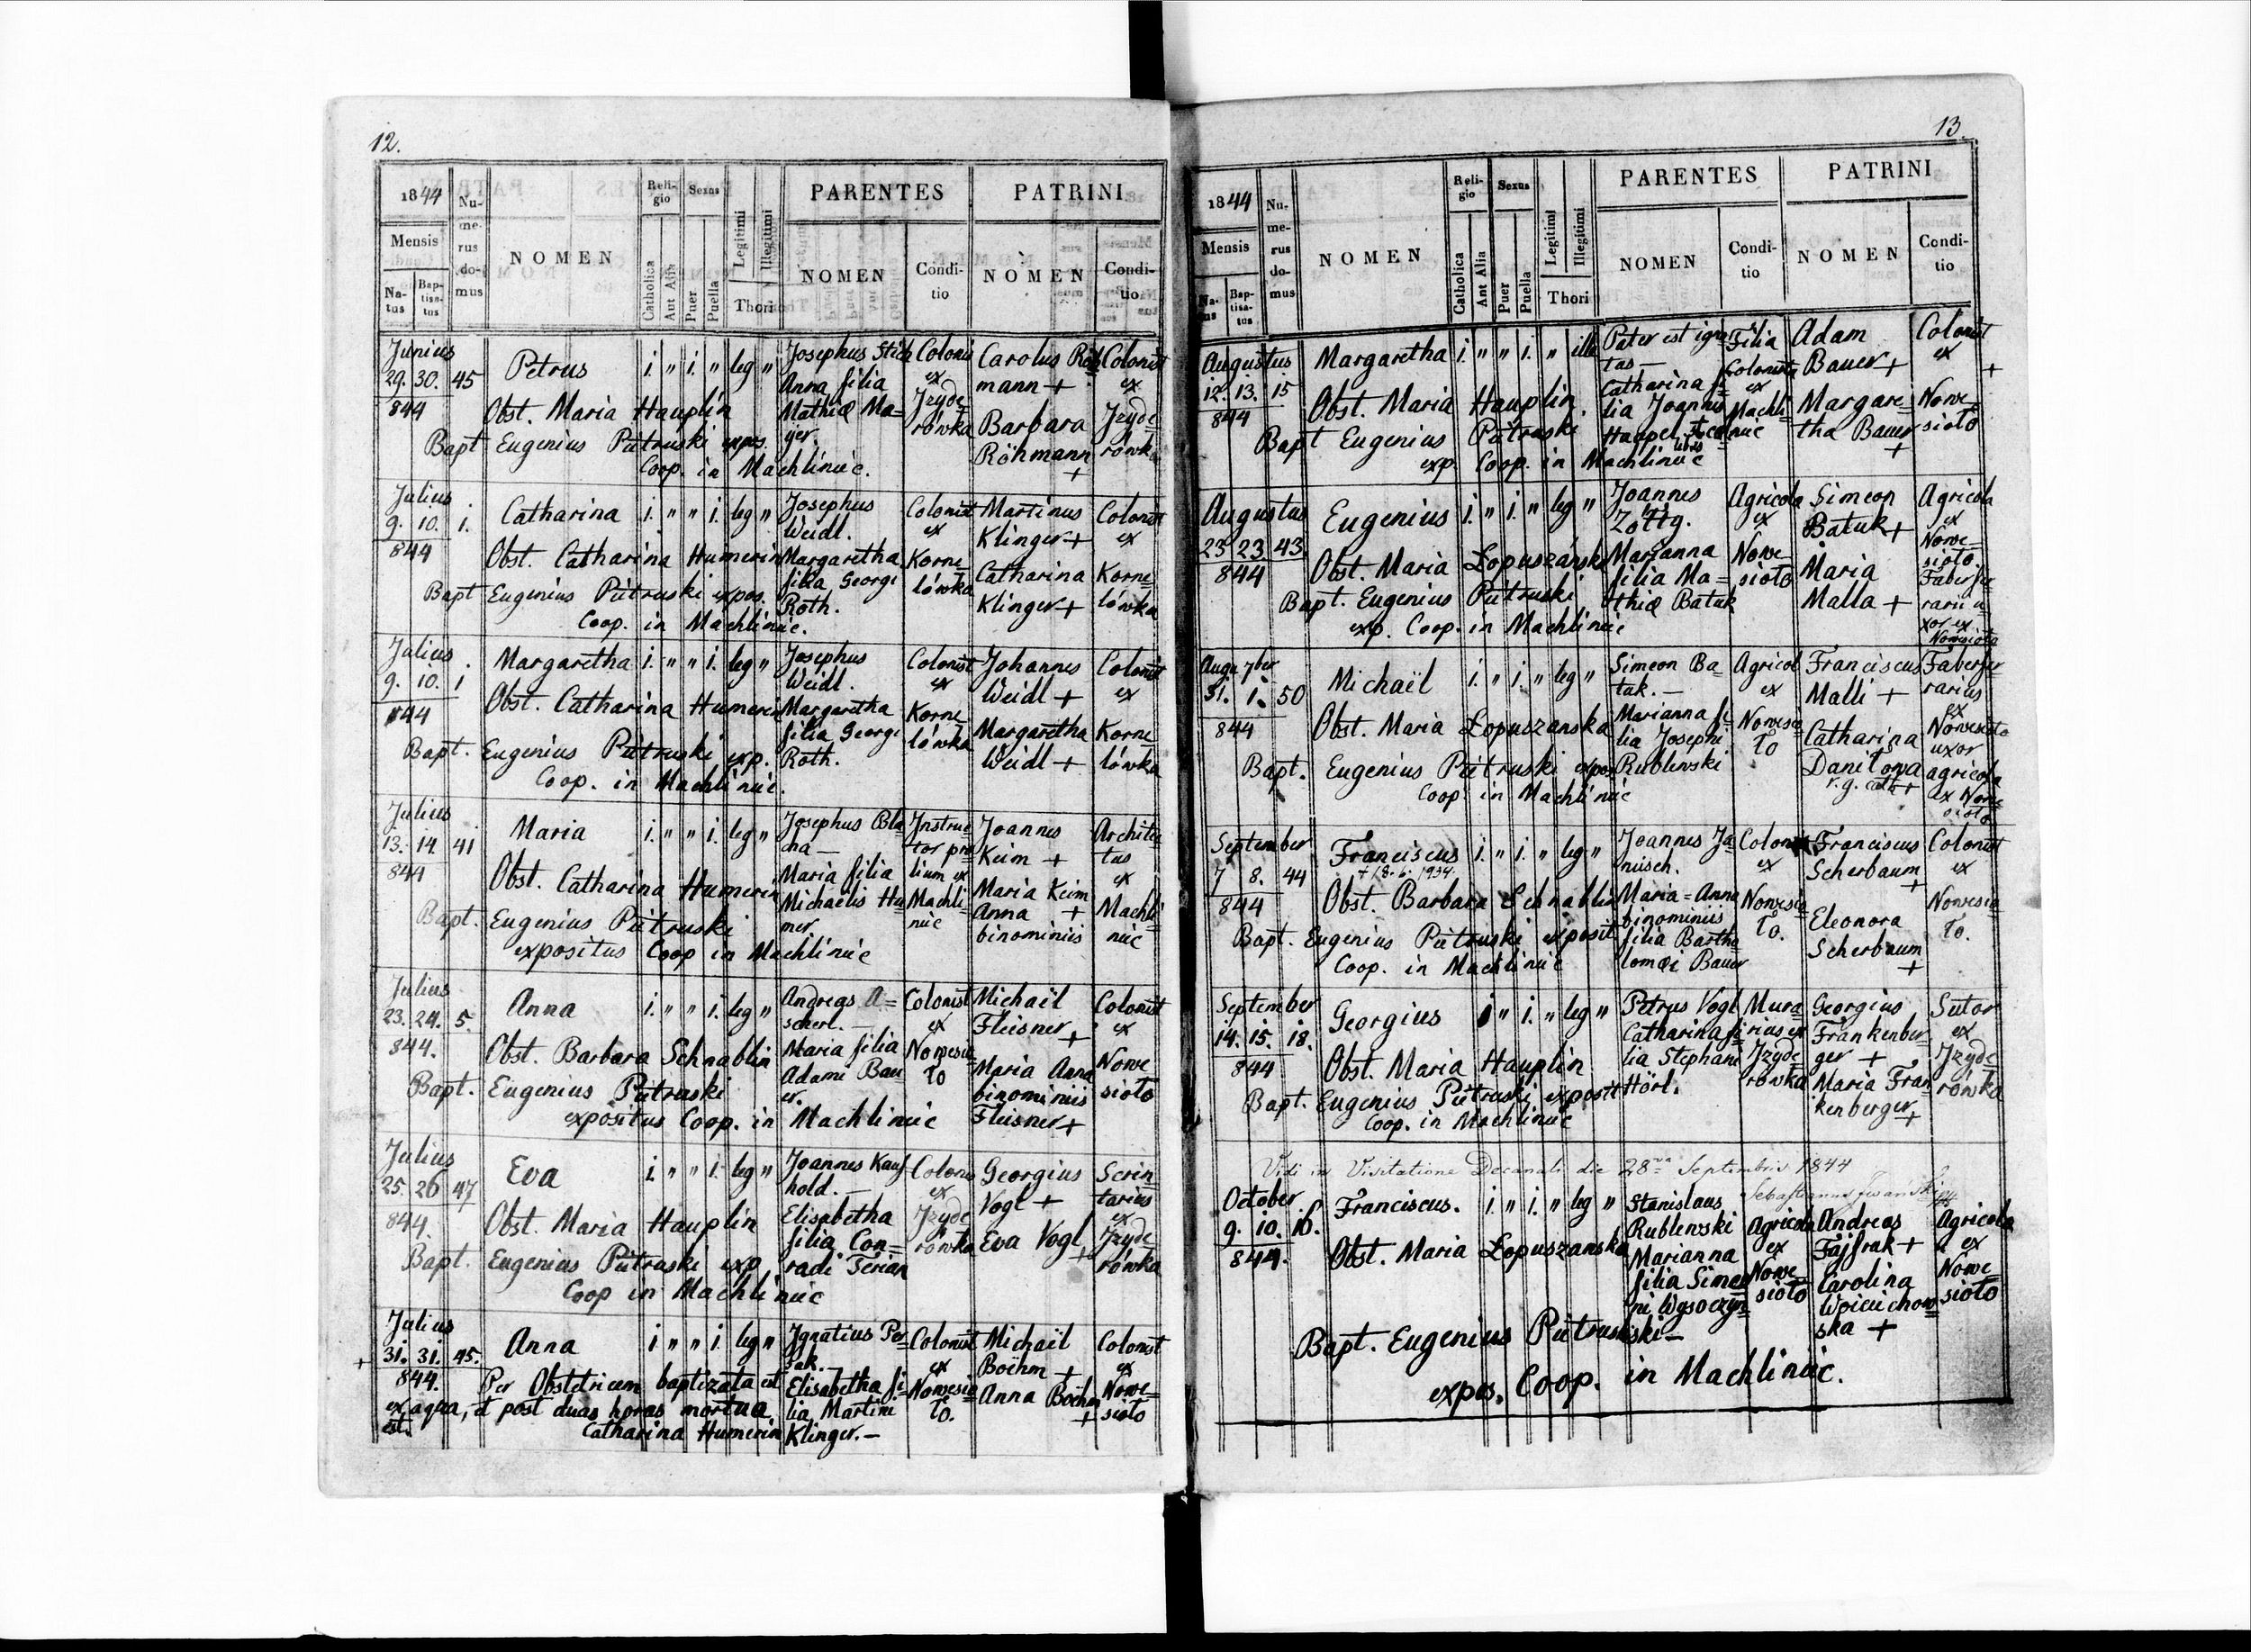 12.
1844
Mensis
Natus
Baptisatus
Numerus domus
NOMEN
Religio
Catholica
Aut Alia
Sexus
Puer
Puella
Legitimi
Illegitimi
Thori
PARENTES
NOMEN
Conditio
PATRINI
NOMEN
Conditio
Junius
29. 30. 45
844
Petrus
i. " i. " leg "
Obst. Maria Hauplin
Bapt Eugenius Pietruski expos.
Coop. in Machliniec.
Josephus Stich
Anna filia
Mathiæ Ma=
ijer.
Colonis
ex
Jzyde
rówka
Carolus Röh
mann +
Barbara
Röhmann
+
Colonist
ex
Jzyde
rówka
Julius
9. 10. 1.
844
Catharina
i. " " i. leg "
Obst. Catharina Humerin
Bapt Eugenius Pietruski expos.
Coop. in Machliniec.
Josephus
Weidl.
Margaretha
filia Georgi
Roth.
Colonist
ex
Korne
lówka
Martinus
Klinger +
Catharina
Klinger +
Colonist
ex
Korne
lówka
Julius
9. 10. 1
844
Margaretha
i. " " i. leg "
Obst. Catharina Humerin
Bapt. Eugenius Pietruski exp.
Coop. in Machliniec.
Josephus
Weidl.
Margaretha
filia Georgi
Roth.
Colonist
ex
Korne
lówka
Johannes
Weidl +
Margaretha
Weidl +
Colonist
ex
Korne
lówka
Julius
13. 14. 41
844
Maria
i. " " i. leg "
Obst. Catharina Humerin
Bapt. Eugenius Pietruski
expositus Coop in Machliniec
Josephus Bla
ha —
Maria filia
Michaelis Hu
mer.
Instruc
tor pro
lium ex
Machli
niec
Joannes
Keim +
Maria Keim
Anna +
binominiis
Architec
tus
ex
Machli
niec
Julius
23. 24. 5.
844.
Anna
i. " " i. leg "
Obst. Barbara Schnablin
Bapt. Eugenius Pietruski
expositus Coop. in Machliniec
Andreas A=
scherl. —
Maria filia
Adami Bau
er.
Colonist
ex
Nowesio
ło
Michaël
Fleisner +
Maria Anna
binominiis
Fleisner +
Colonist
ex
Nowe
sioło
Julius
25. 26 47
844.
Eva
i. " " i. leg "
Obst. Maria Hauplin
Bapt. Eugenius Pietruski exp
Coop in Machliniec
Joannes Kauf
hold. —
Elisabetha
filia Con=
radi Ferian
Colonis
ex
Jzyde
rówka
Georgius
Vogl +
Eva Vogl
+
Scrin
tarius
ex
Jzyde
rówka
Julius
+ 31. 31. 45.
844.
Anna
i " " i. leg "
Per Obstetricem baptizata est
ex aqua, et post duas horas mortua
est.
Catharina Humerin
Ignatius Per
sak. —
Elisabetha fi=
lia Martini
Klinger. —
Colonist
ex
Nowesio
ło.
Michaël
Boëhm +
Anna Böehm
+
Colonist
ex
Nowe=
sioło
13.
1844
Mensis
Natus
Baptisatus
Numerus domus
NOMEN
Religio
Catholica
Aut Alia
Sexus
Puer
Puella
Legitimi
Illegitimi
Thori
PARENTES
NOMEN
Conditio
PATRINI
NOMEN
Conditio
Augustus
12. 13. 15
844
Margaretha
i. " " i. " ille
Obst. Maria Hauplin.
Bapt Eugenius Pietruski
exp. Coop. in Machliniec
Pater est igno
tus —
Catharina fi
lia Joannis
Haupel
Filia
Colonista
ex
Machli
niec
Adam
Bauer +
Margare=
tha Bauer
+
Colonist
ex
+
Nowe
sioło
Augustus
23 23 43.
844
Eugenius
i. " i. " leg "
Obst. Maria Łopuszánska
Bapt. Eugenius Pietruski
exp. Coop. in Machliniec
Joannes
Zottg.
Marianna
filia Ma=
thiæ Batuk
Agricola
ex
Nowe=
sioło
Simeon
Batuk +
Maria
Malla +
Agricola
ex
Nowe=
sioło
Faberfer
rarii u=
xor ex
Nowesioła
Augu 7ber
31. 1. 50
844
Michaël
i. " i. " leg "
Obst. Maria Łopuszanska
Bapt. Eugenius Pietruski expos
Coop. in Machliniec
Simeon Ba=
tak. —
Marianna fi=
lia Josephi
Rublewski
Agricol
ex
Nowesio
ło
Franciscus
Malli +
Catharina
Daniłowa
r. g. cath +
Faberfer
rarius
ex
Nowesioło
uxor
agricola
ex Nowe
sioło
September
7 8. 44
844
Franciscus
+ 18. 6. 1934.
i. " i. " leg "
Obst. Barbara Schnablin
Bapt. Eugenius Pietruski exposit
Coop. in Machliniec
Joannes Ja=
nisch.
Maria=Anna
binominiis
filia Bartho
lomæi Bauer
Colonist
ex
Nowesio
ło.
Franciscus
Scherbaum
+
Eleonora
Scherbaum
+
Colonist
ex
Nowesio
ło.
September
14. 15. 18.
844
Georgius
i " i. " leg "
Obst. Maria Hauplin
Bapt. Eugenius Pietruski exposit
Coop. in Machliniec
Petrus Vogl
Catharina fi
lia Stephani
Hörl.
Mura
rius ex
Jzyde
rówka
Georgius
Frankenber=
ger +
Maria Fran
kenberger +
Sutor
ex
Jzyde
rówka
Vidi in Visitatione Decanali die 28va Septembris 1844
October
9. 10. 16.
844.
Franciscus.
i. " i. " leg "
Obst. Maria Łopuszanska
Stanislaus
Rublewski
Marianna
filia Simeo
ni Wysoczyn
ski —
Agricola
ex
Nowe
sioło
Andreas
Fajfrak +
Carolina
Woiciechow=
ska +
Agricola
ex
Nowe
sioło
Bapt. Eugenius Pietruski
expos. Coop. in Machliniec.